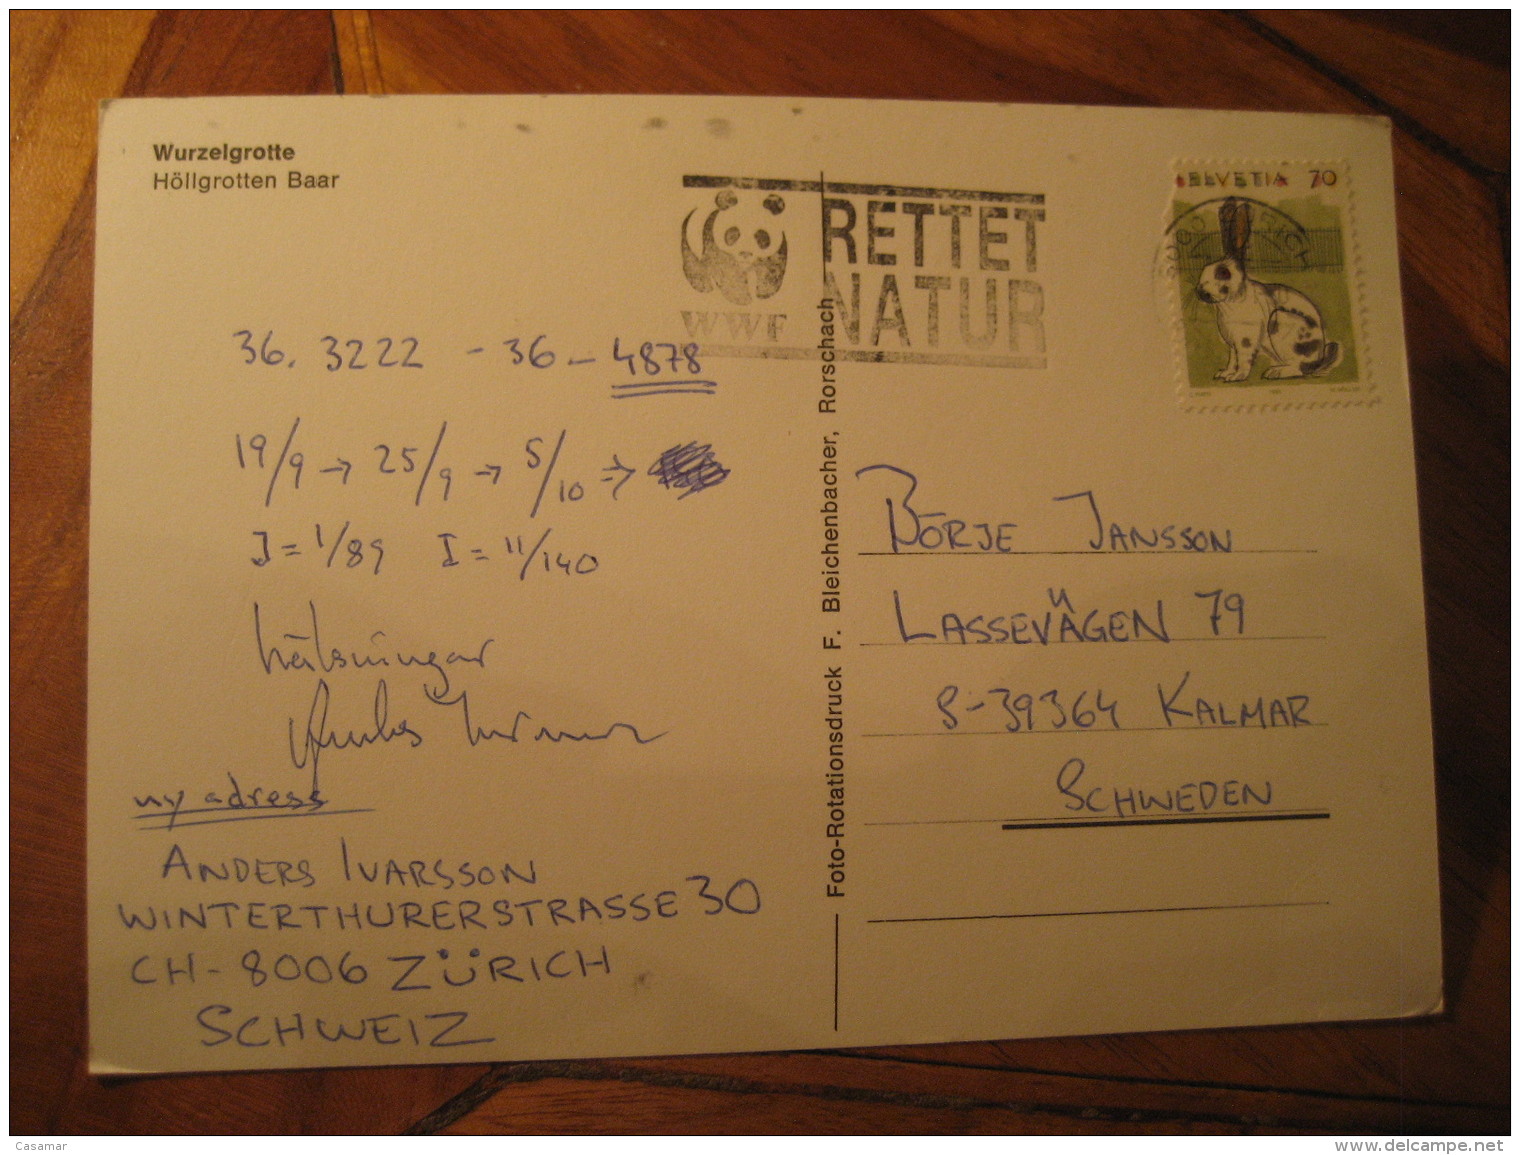 Wurzelgrotte
Höllgrotten Baar
WWF
RETTET
NATUR
HELVETIA 70
36. 3222 - 36 - 4878
19/9 → 25/9 → 5/10 ⇒
J = 1/89 I = 11/140
hälsningar
my adress
ANDERS IVARSSON
WINTERTHURERSTRASSE 30
CH-8006 ZÜRICH
SCHWEIZ
Foto-Rotationsdruck F. Bleichenbacher, Rorschach
BÖRJE JANSSON
LASSEVÄGEN 79
S-39364 KALMAR
SCHWEDEN
Casamar
www.delcampe.net